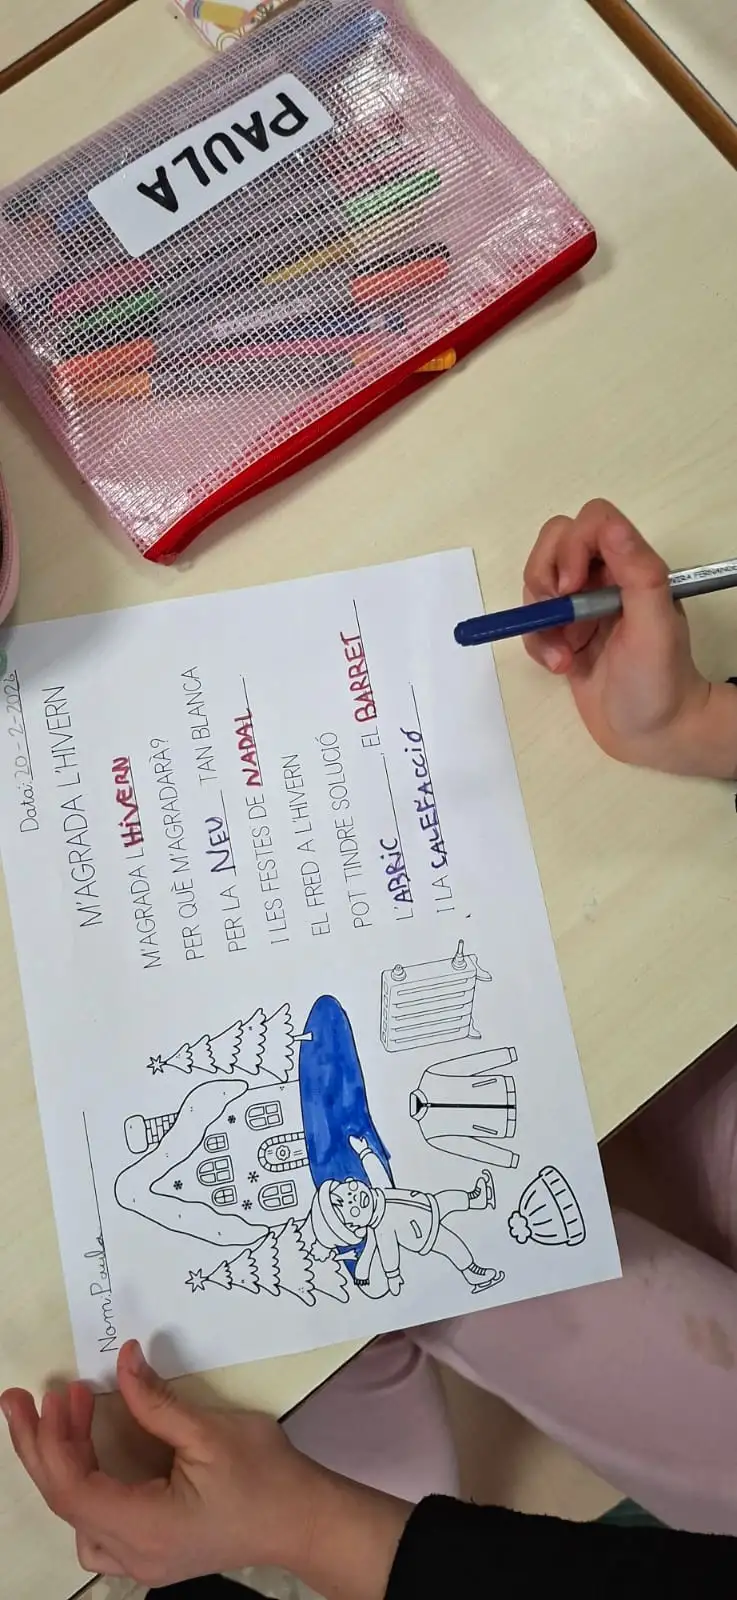 PAULA
Nom: Paula
Data: 20-2-2026
M'AGRADA L'HIVERN
M'AGRADA L'HiVERN
PER QUÈ M'AGRADARÀ?
PER LA NEU TAN BLANCA
I LES FESTES DE NADAL.
EL FRED A L'HIVERN
POT TINDRE SOLUCIÓ
L'ABRiC, EL BARRET
I LA CALEFACCiÓ.